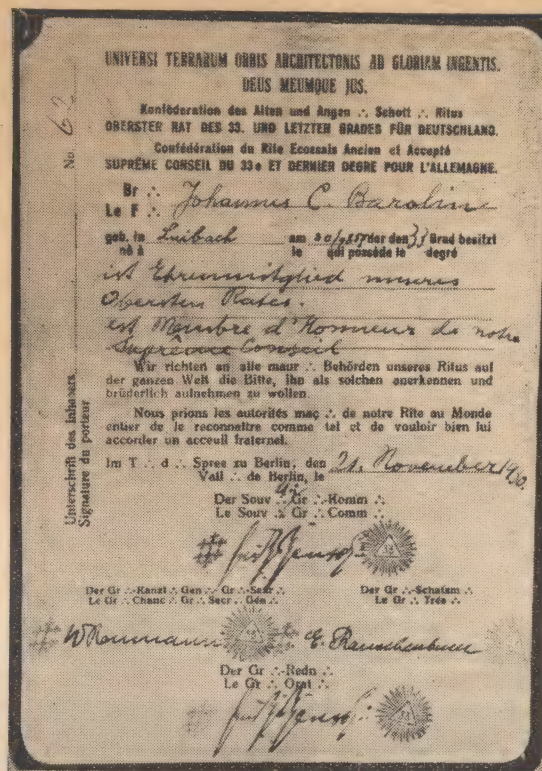 UNIVERSI TERRARUM ORBIS ARCHITECTONIS AD GLORIAM INGENTIS.
DEUS MEUMQUE JUS.
Konföderation des Alten und Angen ∴ Schott ∴ Ritus
OBERSTER RAT DES 33. UND LETZTEN GRADES FÜR DEUTSCHLAND.
Confédération du Rite Ecossais Ancien et Accepté
SUPRÊME CONSEIL DU 33e ET DERNIER DEGRE POUR L'ALLEMAGNE.
No. 62
Br ∴
Le F ∴ Johannus C. Barolin
geb. in Laibach am der den 33 Grad besitzt
né à le qui possède le degré
ist Ehrenmitglied unseres
Obersten Rates.
est Membre d'Honneur de notre
Suprême Conseil
Wir richten an alle maur ∴ Behörden unseres Ritus auf
der ganzen Welt die Bitte, ihn als solchen anerkennen und
brüderlich aufnehmen zu wollen.
Nous prions les autorités maç ∴ de notre Rite au Monde
entier de le reconnaître comme tel et de vouloir bien lui
accorder un acceuil fraternel.
Im T ∴ d ∴ Spree zu Berlin, den 21. November 1930.
Vall ∴ de Berlin, le
Der Souv ∴ Gr ∴ Komm ∴
Le Souv ∴ Gr ∴ Comm ∴
33
Der Gr ∴ Kanzl ∴ Gen ∴ Gr ∴ Sekr ∴ Der Gr ∴ Schatzm ∴
Le Gr ∴ Chanc ∴ Gr ∴ Secr ∴ Gén ∴ Le Gr ∴ Trés ∴
33
Der Gr ∴ Redn ∴
Le Gr ∴ Orat ∴
33
Unterschrift des Inhabers
Signature du porteur